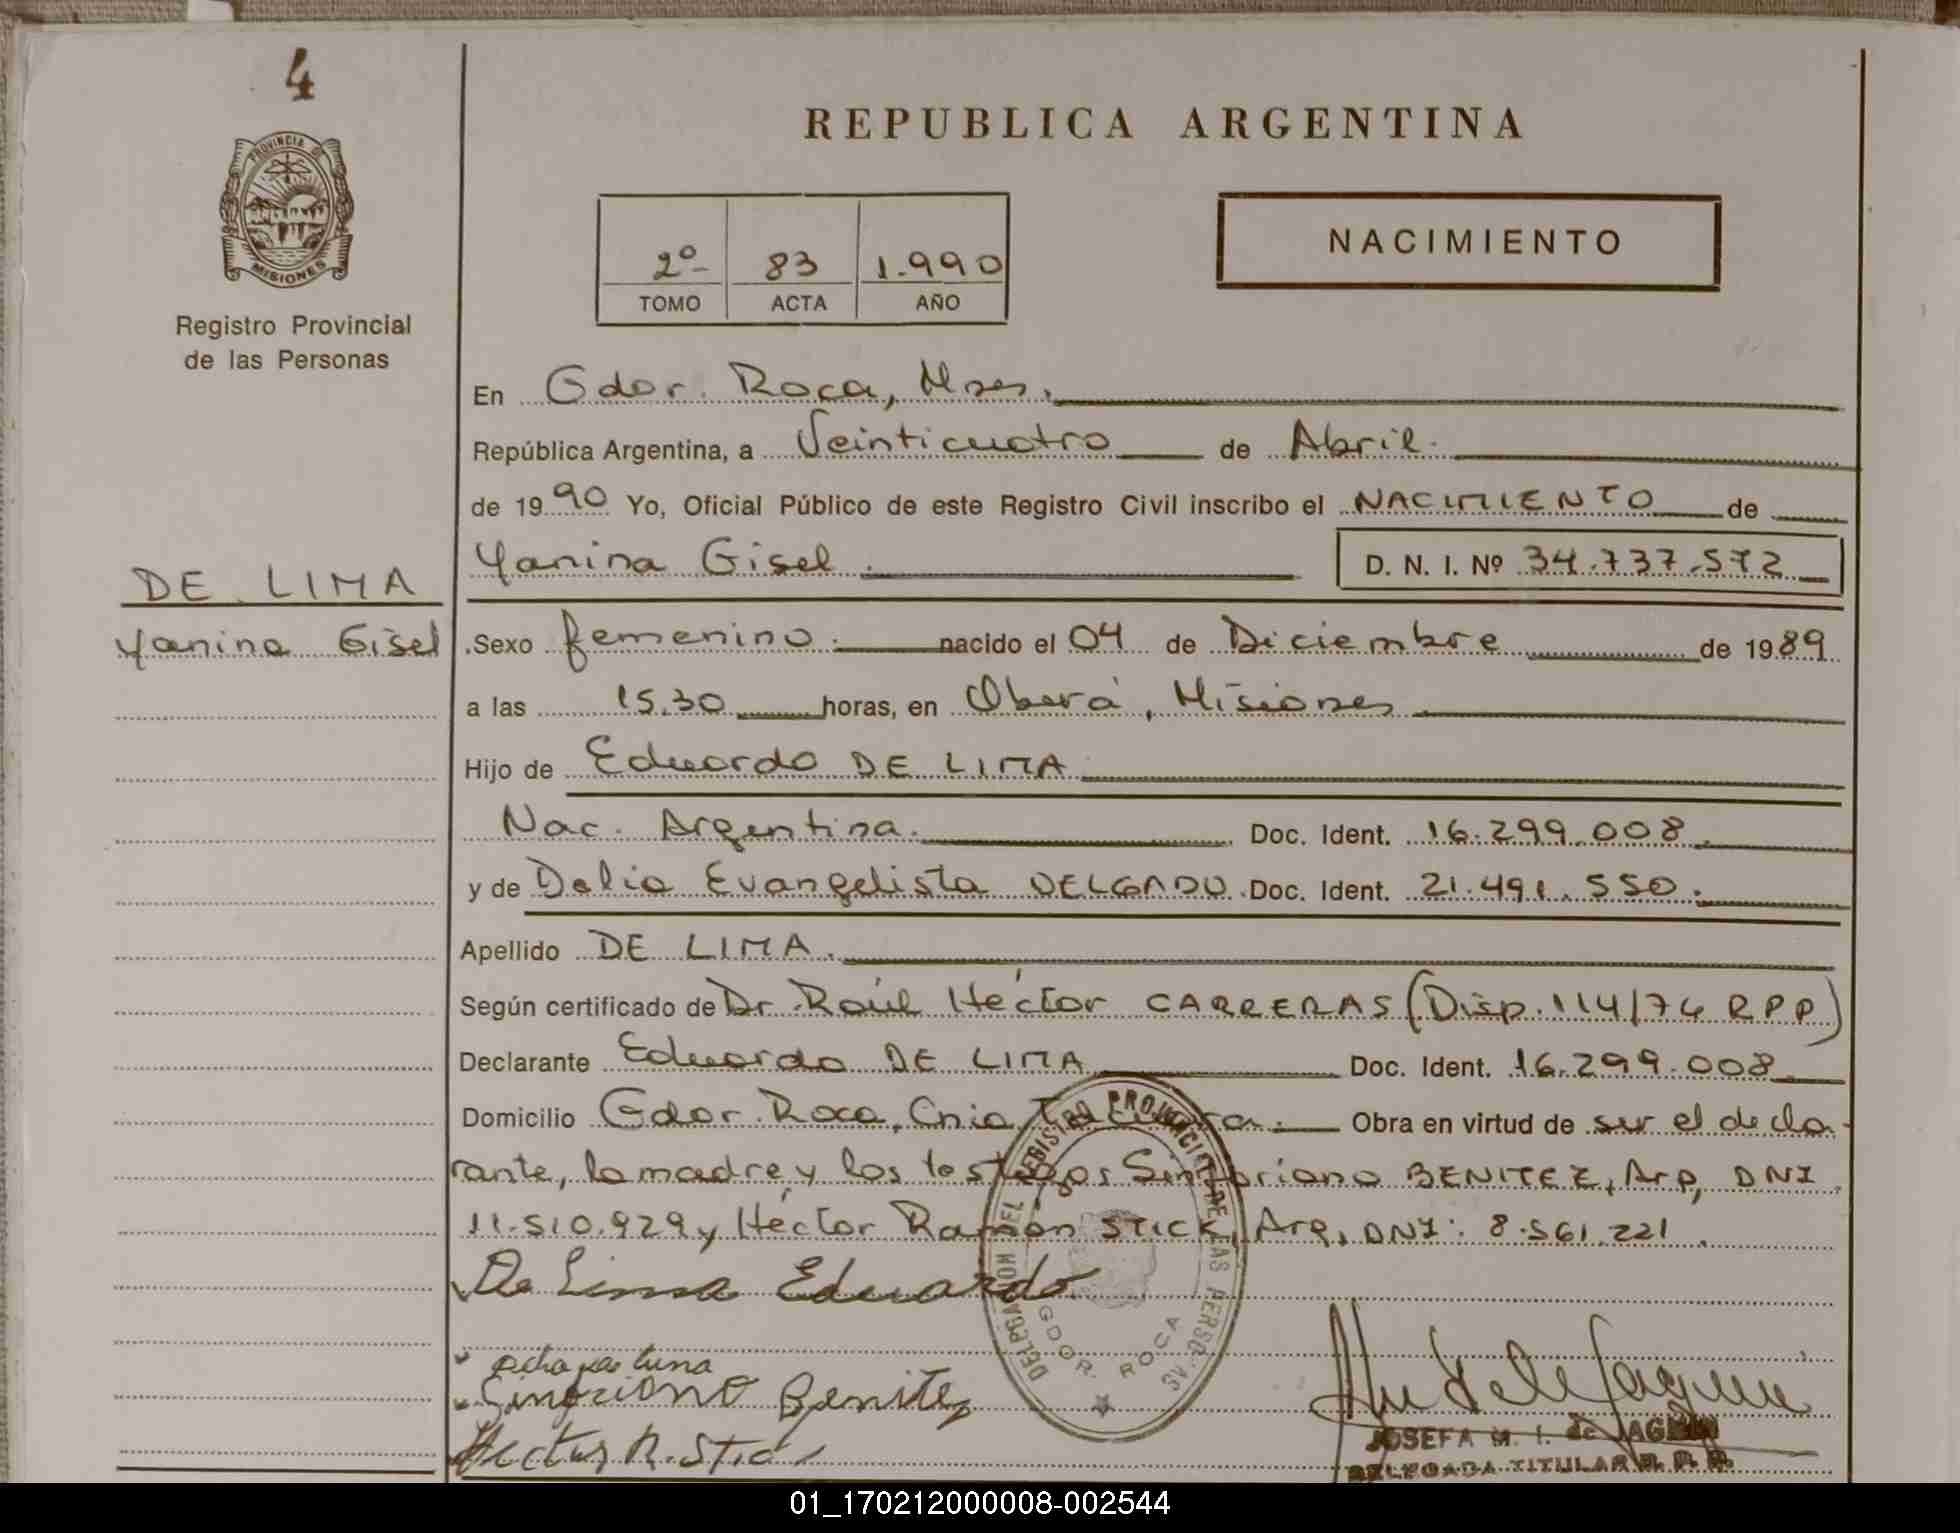 4
PROVINCIA D
MISIONES
Registro Provincial
de las Personas
DE LIMA
Yanina Gisel
REPUBLICA ARGENTINA
2º 83 1.990
TOMO ACTA AÑO
NACIMIENTO
En Gdor. Roca, Mnes.
República Argentina, a Veinticuatro de Abril.
de 1990 Yo, Oficial Público de este Registro Civil inscribo el NACIMIENTO de
Yanina Gisel. D. N. I. Nº 34.737.572
Sexo femenino. nacido el 04 de Diciembre de 1989
a las 15.30 horas, en Oberá, Misiones
Hijo de Eduardo DE LIMA
Nac. Argentina. Doc. Ident. 16.299.008.
y de Delia Evangelista DELGADO. Doc. Ident. 21.491.550.
Apellido DE LIMA.
Según certificado de Dr. Raúl Héctor CARRERAS (Disp. 114/74 RPP)
Declarante Eduardo DE LIMA Doc. Ident. 16.299.008
Domicilio Gdor. Roca, Cnia. Obra en virtud de ser el decla-
rante, la madre y los testigos Sinforiano BENITEZ, Arg, DNI
11.510.929 y Héctor Ramón STICK, Arg, DNI: 8.561.221.
De Lima Eduardo
Benitez
Hector R. Stic
DELEGACION DEL REGISTRO PROVINCIAL DE LAS PERSONAS
GDOR. ROCA
JOSEFA M. I. de
DELEGADA TITULAR R. P. P.
01_170212000008-002544